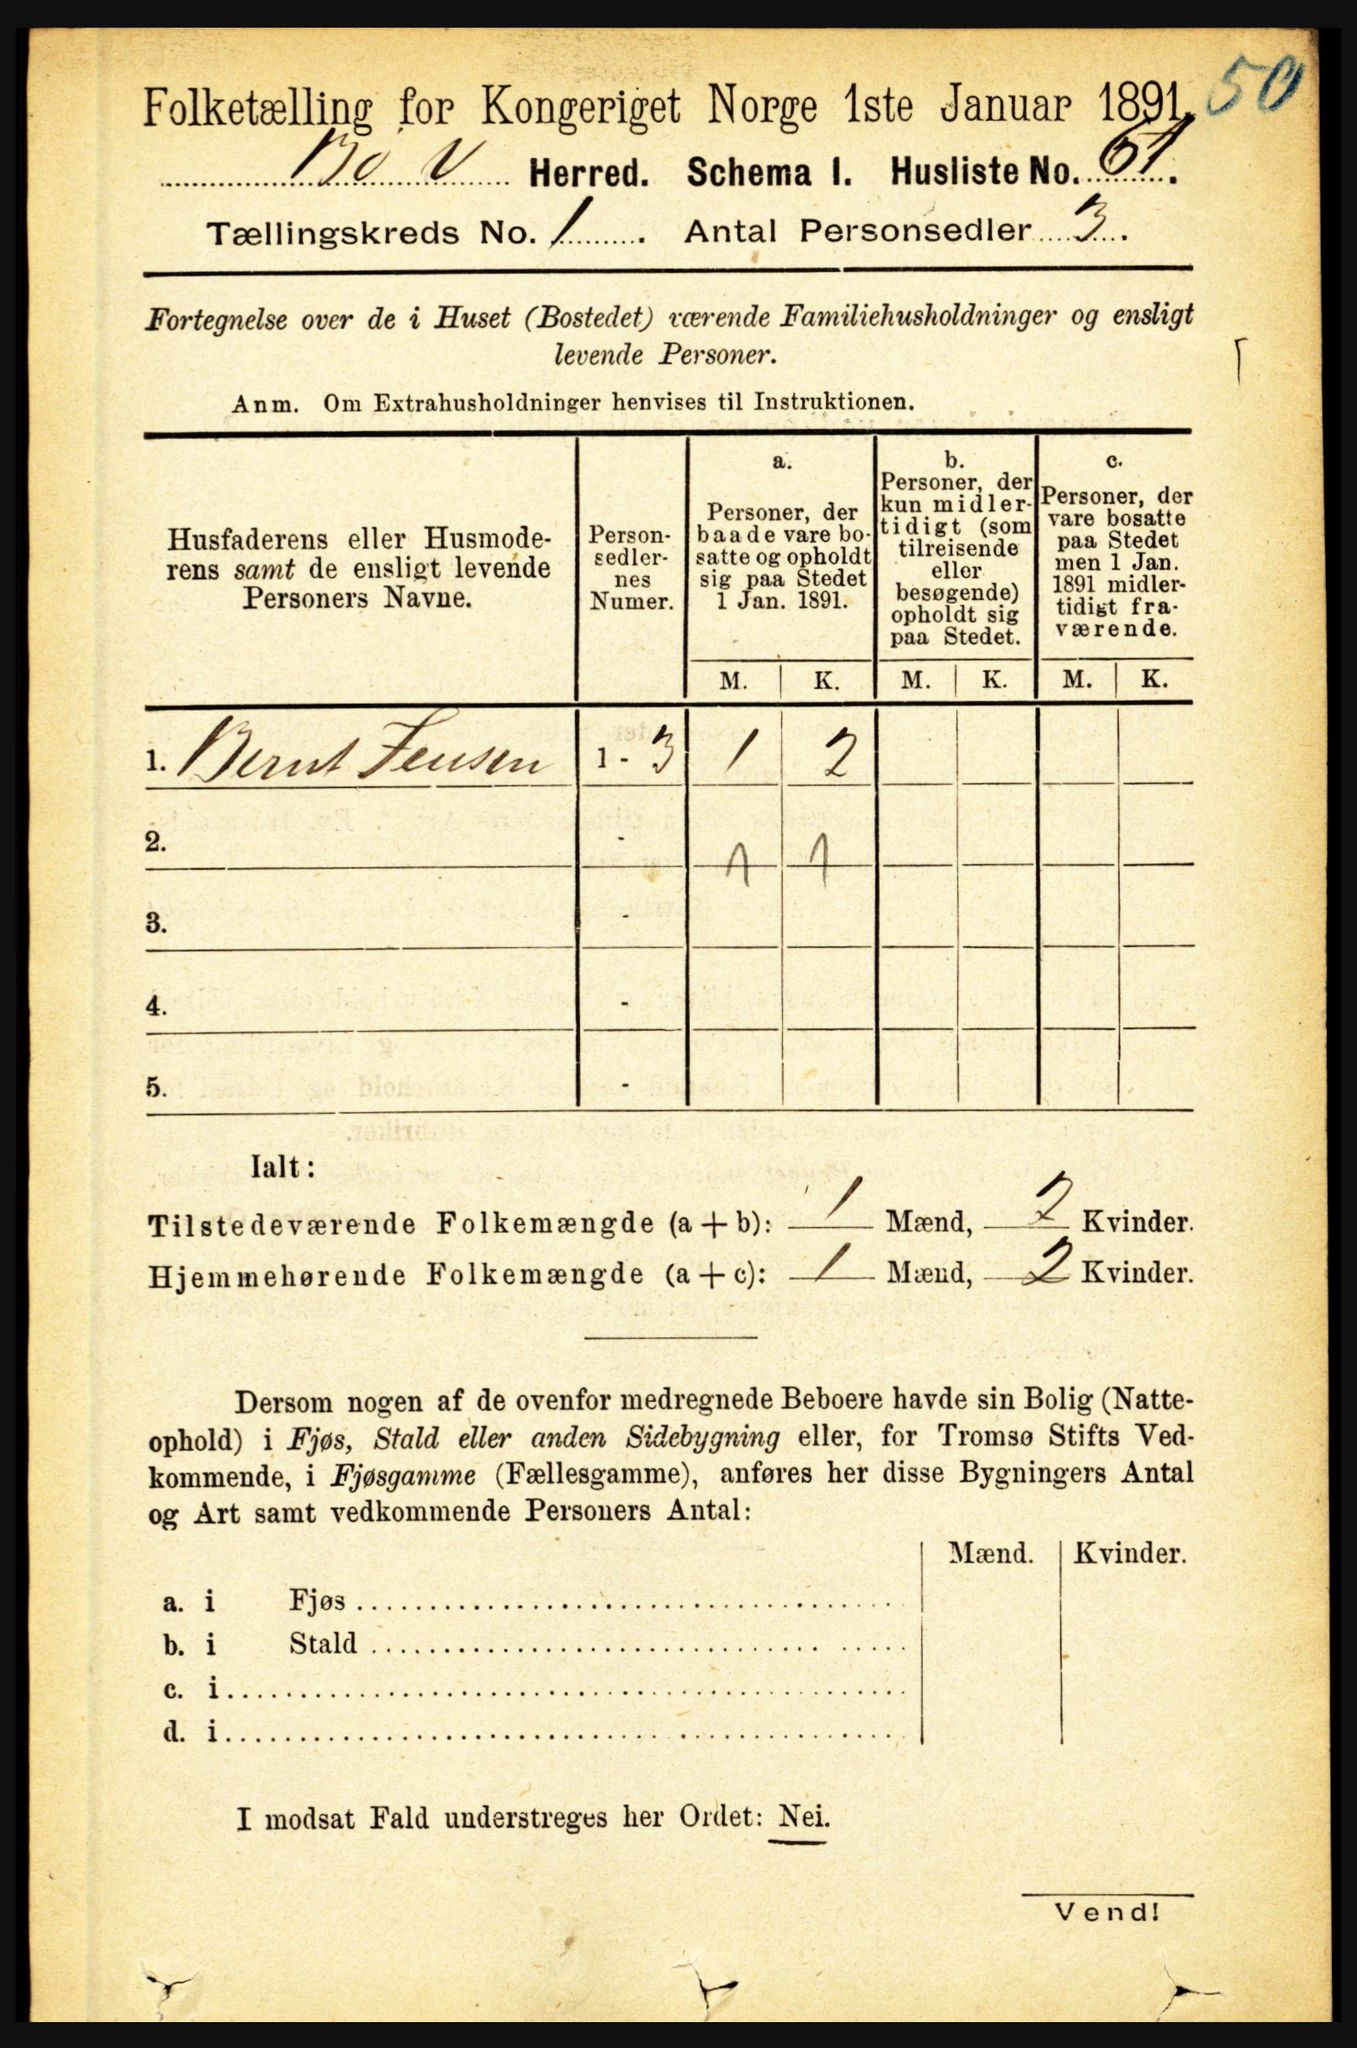 50
Folketælling for Kongeriget Norge 1ste Januar 1891.
Bø V Herred. Schema I. Husliste No. 61.
Tællingskreds No. 1. Antal Personsedler 3.
Fortegnelse over de i Huset (Bostedet) værende Familiehusholdninger og ensligt
levende Personer.
Anm. Om Extrahusholdninger henvises til Instruktionen.
Husfaderens eller Husmode-
rens samt de ensligt levende
Personers Navne.
Person-
sedler-
nes
Numer.
a.
Personer, der
baade vare bo-
satte og opholdt
sig paa Stedet
1 Jan. 1891.
b.
Personer, der
kun midler-
tidigt (som
tilreisende
eller
besøgende)
opholdt sig
paa Stedet.
c.
Personer, der
vare bosatte
paa Stedet
men 1 Jan.
1891 midler-
tidigt fra-
værende.
M. K. M. K. M. K.
1. Bernt Jensen 1 - 3 1 2
2. - 1 1
3. -
4. -
5. -
Ialt:
Tilstedeværende Folkemængde (a + b): 1 Mænd, 2 Kvinder.
Hjemmehørende Folkemængde (a + c): 1 Mænd, 2 Kvinder.
Dersom nogen af de ovenfor medregnede Beboere havde sin Bolig (Natte-
ophold) i Fjøs, Stald eller anden Sidebygning eller, for Tromsø Stifts Ved-
kommende, i Fjøsgamme (Fællesgamme), anføres her disse Bygningers Antal
og Art samt vedkommende Personers Antal:
Mænd. Kvinder.
a. i Fjøs
b. i Stald
c. i
d. i
I modsat Fald understreges her Ordet: Nei.
Vend!